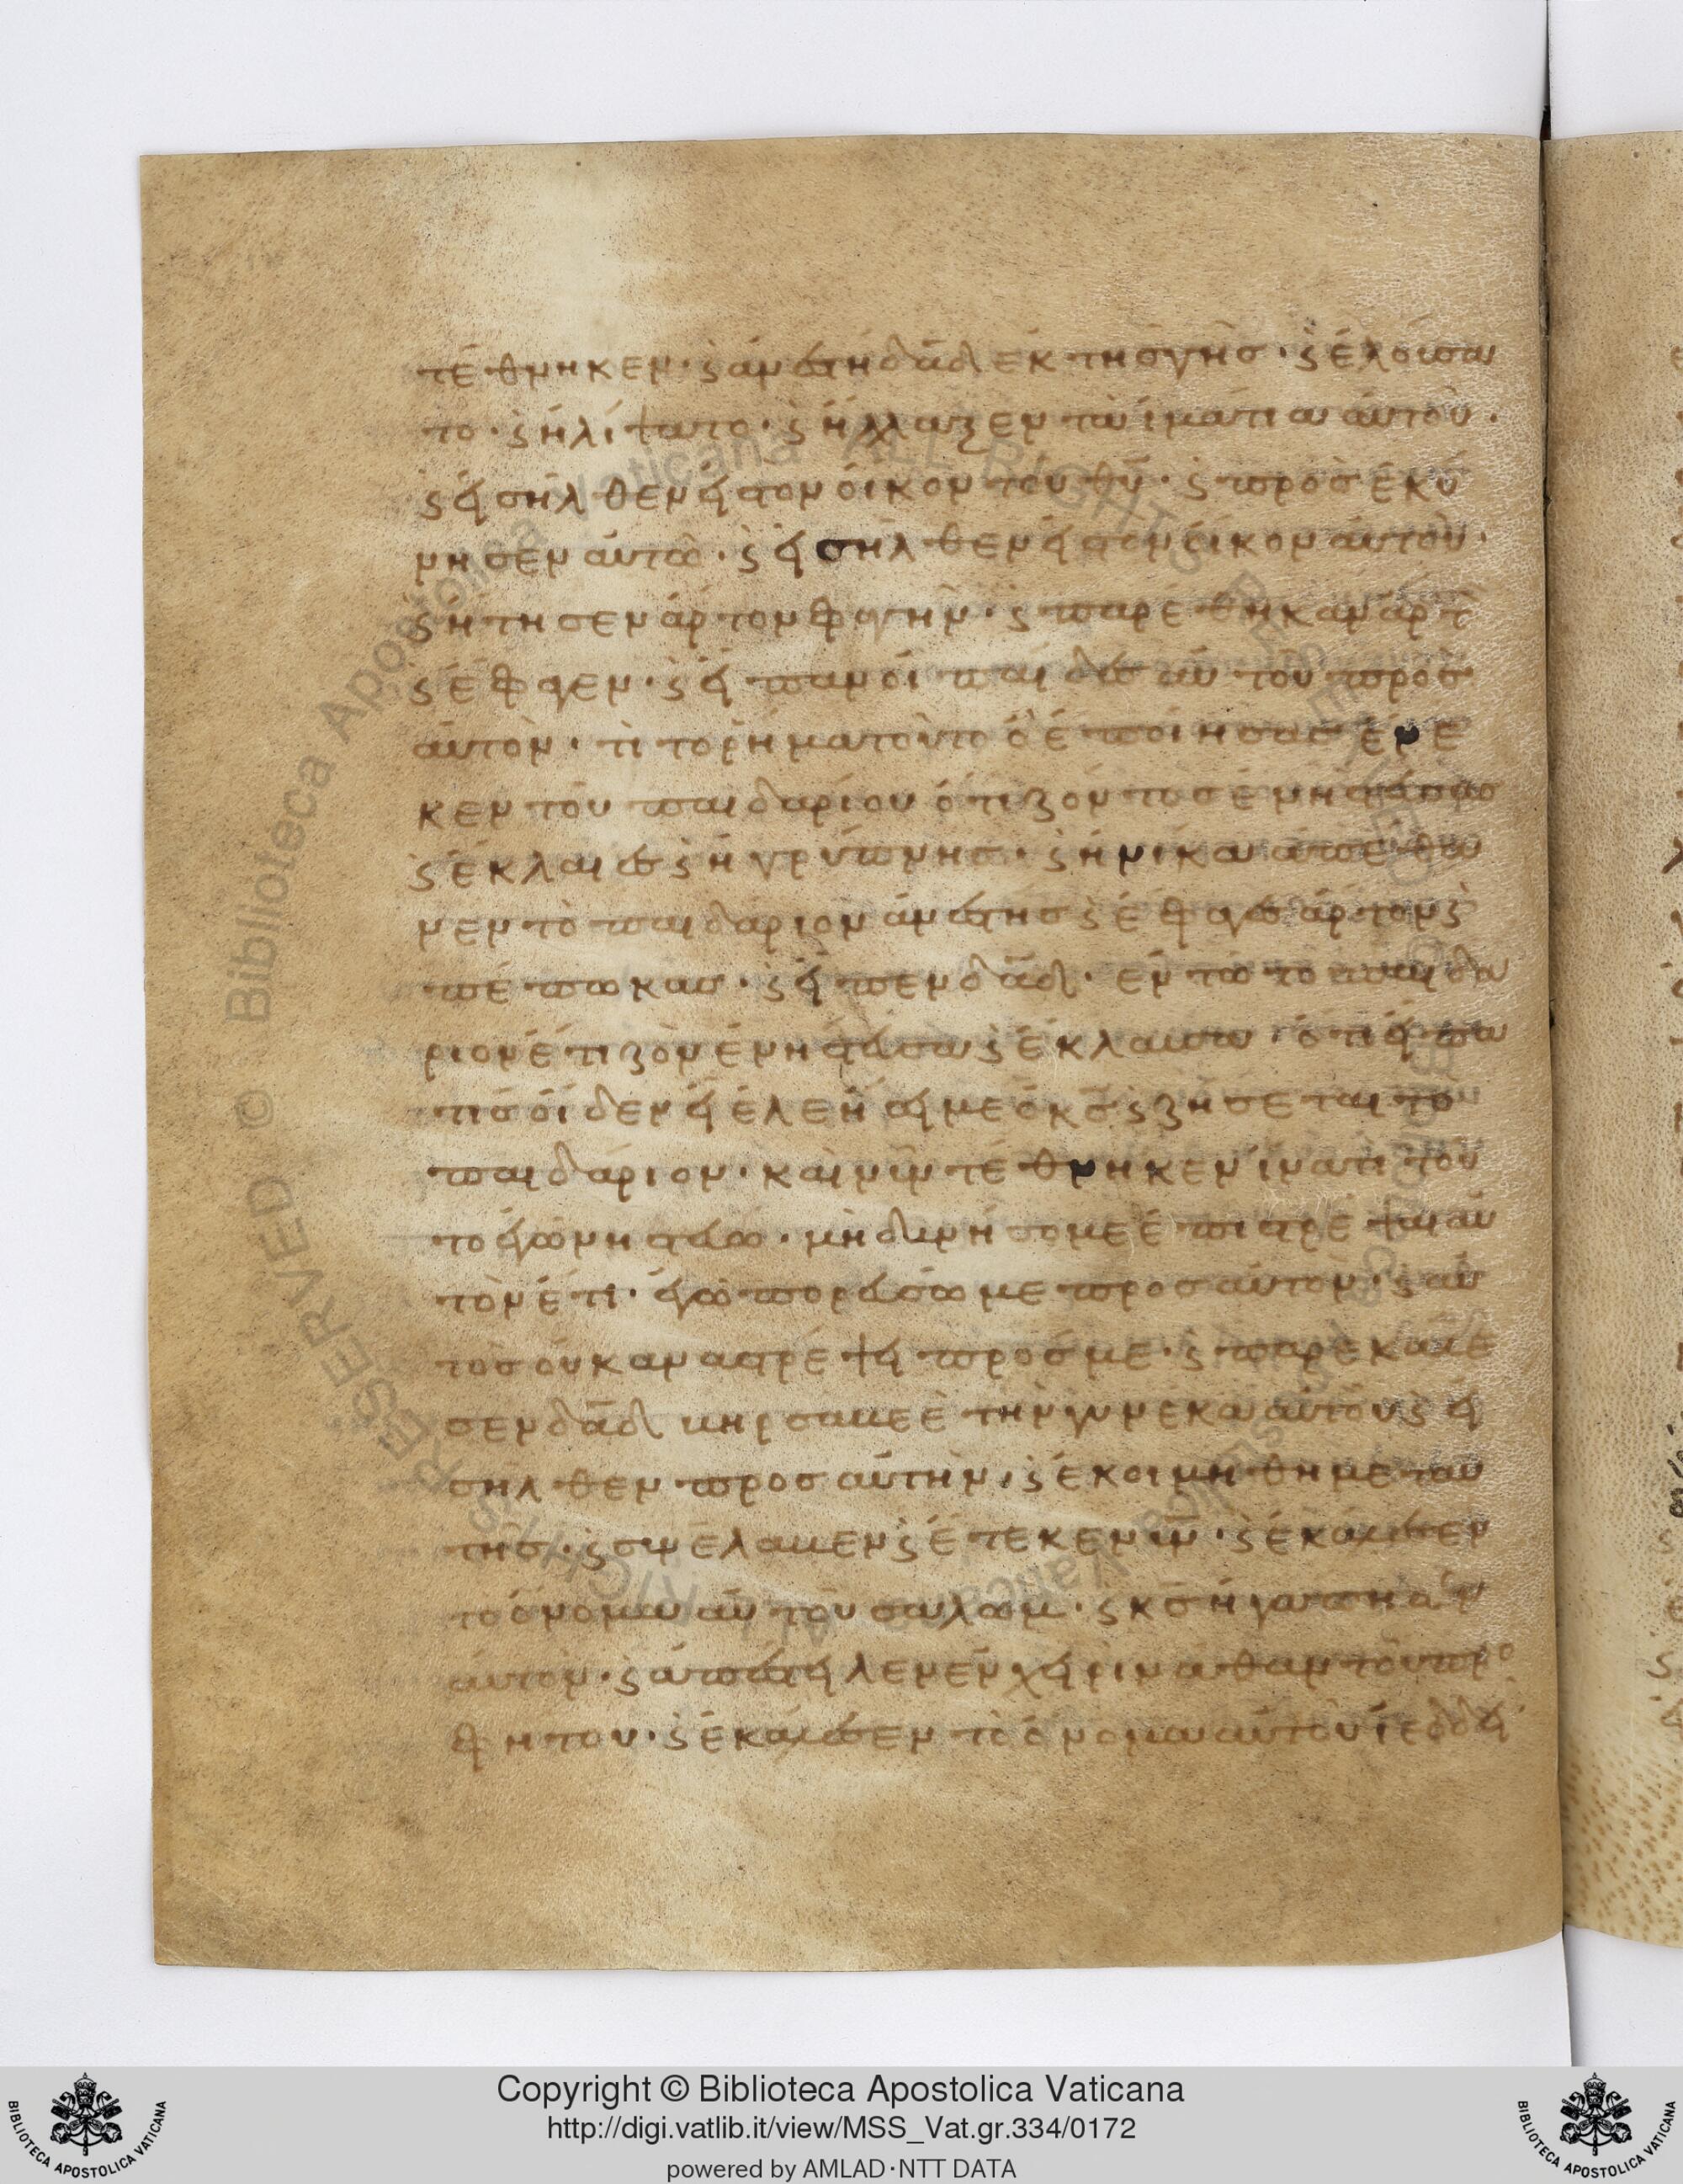 τέθνηκεν· ϛ ἀνέστη δᾱδ ἐκ τῆς γῆς· ϛ ἐλούσα
το· ϛ ἠλίψατο· ϛ ἤλλαξεν τὰ ἱμάτια αὐτοῦ·
ϛ εἰσῆλθεν εἰς τὸν οἶκον τοῦ θῡ· ϛ προσεκύ
νησεν αὐτῶ· ϛ εἰσῆλθεν εἰς τὸν οἶκον αὐτοῦ·
ϛ ήτησεν ἄρτον φαγῆν· ϛ παρέθηκαν ἄρτο
ϛ ἔφαγεν· ϛ εἶπαν οἱ παῖδες αὐτοῦ πρὸς
αὐτὸν· τί τὸ ρῆμα τοῦτο ὃ ἐποίησας ἕνε
κεν τοῦ παιδαρίου ὅτι ζόντος ἐνήστευσας
ϛ ἔκλαιες ϛ ἠγρύπνης· ϛ ἡνίκα ἀπέθα
νεν τὸ παιδάριον ἀνέστης ϛ ἔφαγες ἄρτον ϛ
πέπωκας· ϛ εἶπεν δᾱδ· ἐν τῶ τὸ παιδά
ριον ἔτι ζὸν ἐνήστευσα ϛ ἔκλαυσα· ὅτι εἶπα
τίς οἶδεν εἰ ἐλεήσει με ὁ κ̄ς ϛ ζήσεται τὸ
παιδάριον· καὶ νῦν τέθνηκεν ἵνα τί τοῦ
το ἐγὼ νηστεύω· μὴ δυνήσομε ἐπιστρέψαι αὐ
τὸν ἔτι· ἐγὼ πορεύσωμε πρὸς αὐτόν· ϛ αὐ
τὸς οὐκ ἀναστρέψει πρός με· ϛ παρεκάλε
σεν δᾱδ βηρσαβεὲ τὴν γυνέκα αὐτοῦ ϛ εἰ
σῆλθεν πρὸς αὐτὴν· ϛ ἐκοιμήθη μετ αὐ
τῆς· ϛ συνέλαβεν ϛ ἔτεκεν ῡν· ϛ ἐκάλεσεν
τὸ ὄνομα αὐτοῦ σαλωμ· ϛ κ̄ς ἠγάπησεν
αὐτὸν· ϛ ἀπέστειλεν ἐν χειρὶ νάθαν τοῦ προ
φήτου· ϛ ἐκάλεσεν τὸ ὄνομα αὐτοῦ ἰεδδεί